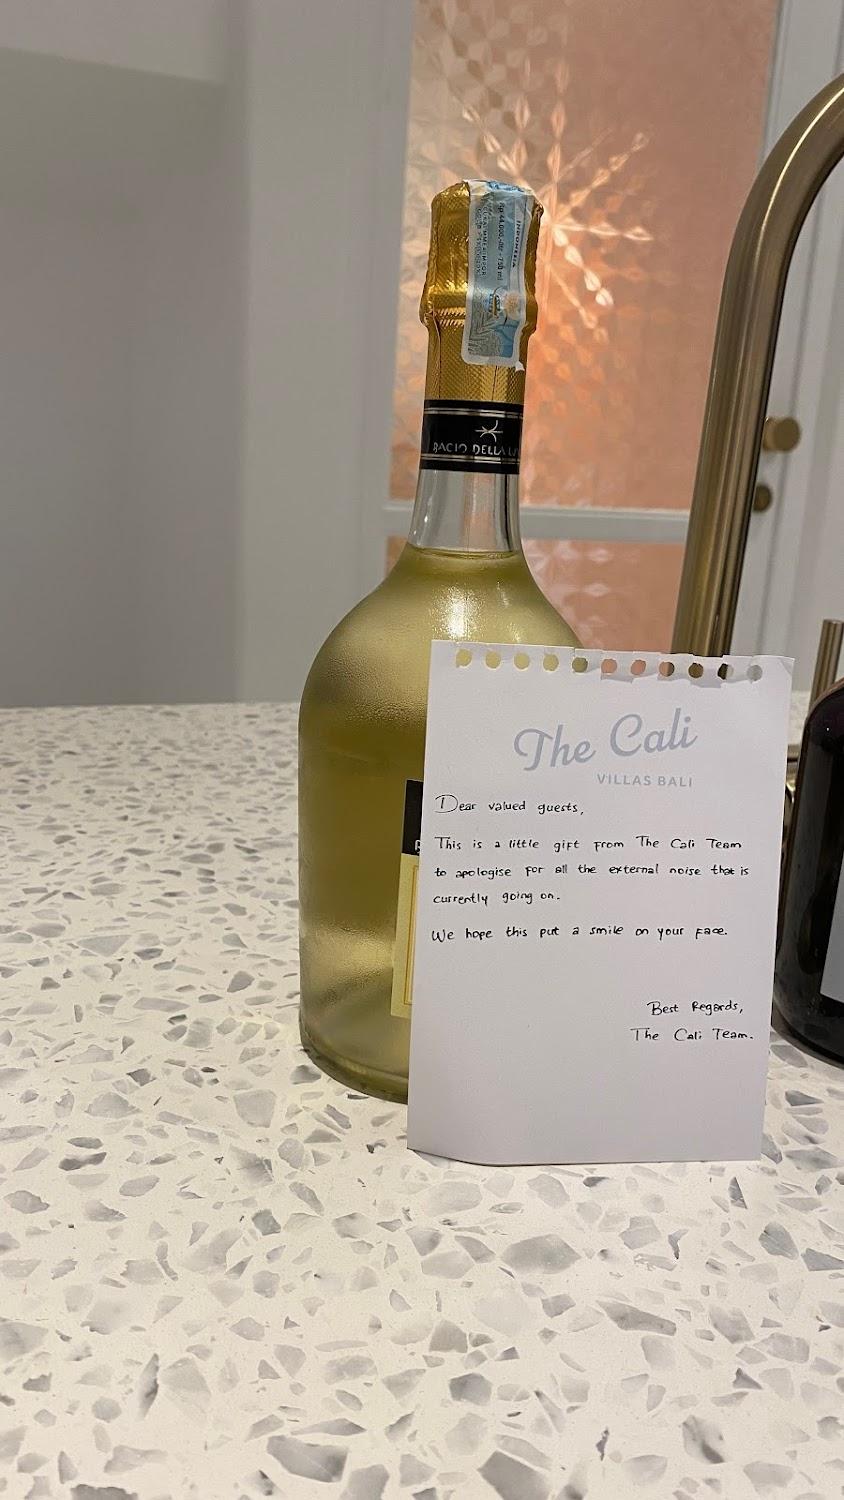 INDONESIA
BACIO DELLA
The Cali
VILLAS BALI
Dear valued guests,
This is a little gift from The Cali Team
to apologise for all the external noise that is
currently going on.
We hope this put a smile on your face.
Best Regards,
The Cali Team.